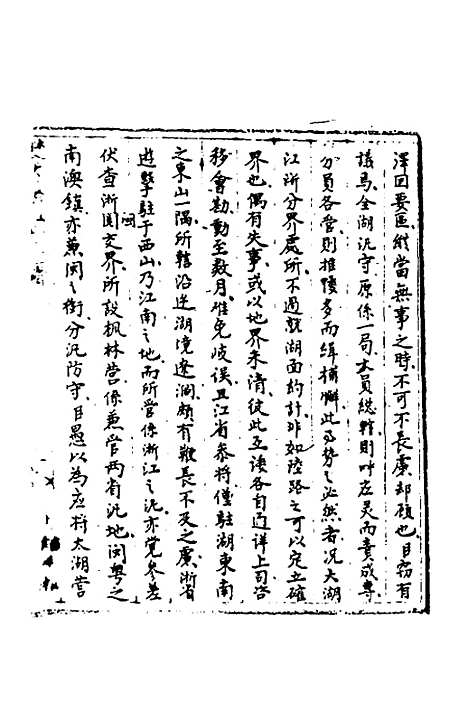 澤回要區縱當無事之時不可不長慮却顧也臣竊有
議焉全湖汛守原係一局大員總轄則呼应灵而責成專
分員各营則推諉多而緝捕懈此必勢之必然者况大湖
江浙分界處所不過就湖面約計非如陸路之可以定立確
界也偶有失事或以地界未清從此互諉各自通詳上司咨
移會勘動至数月难免岐误且江省参将僅駐湖東南
之東山一隅所轄沿邊湖境遼濶頗有鞭長不及之慮浙省
遊擊駐于西山乃江南之地而所管係浙江之汛亦覚参差
伏查浙閩交界所設枫林营係兼管两省汛地闽粤之
閩
南澳鎮亦兼闽之衔分汛防守臣愚以為应将太湖营